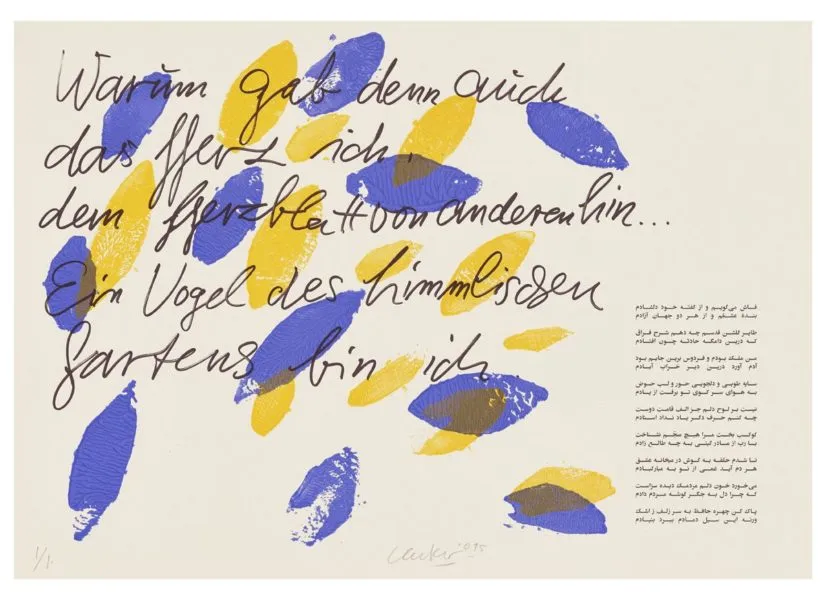 Warum gab denn auch
das Herz ich.
dem Herzblatt von anderen hin...
Ein Vogel des himmlischen
Gartens bin ich
فاش می‌گویم و از گفته خود دلشادم
بنده عشقم و از هر دو جهان آزادم
طایر گلشن قدسم چه دهم شرح فراق
که درین دامگه حادثه چون افتادم
من ملک بودم و فردوس برین جایم بود
آدم آورد درین دیر خراب آبادم
سایه طوبی و دلجویی حور و لب حوض
به هوای سر کوی تو برفت از یادم
نیست بر لوح دلم جز الف قامت دوست
چه کنم حرف دگر یاد نداد استادم
کوکب بخت مرا هیچ منجّم نشناخت
یا رب از مادر گیتی به چه طالع زادم
تا شدم حلقه به گوش در میخانه عشق
هر دم آید غمی از نو به مبارکبادم
می‌خورد خون دلم مردمک دیده سزاست
که چرا دل به جگر گوشه مردم دادم
پاک کن چهره حافظ به سر زلف ز اشک
ورنه این سیل دمادم ببرد بنیادم